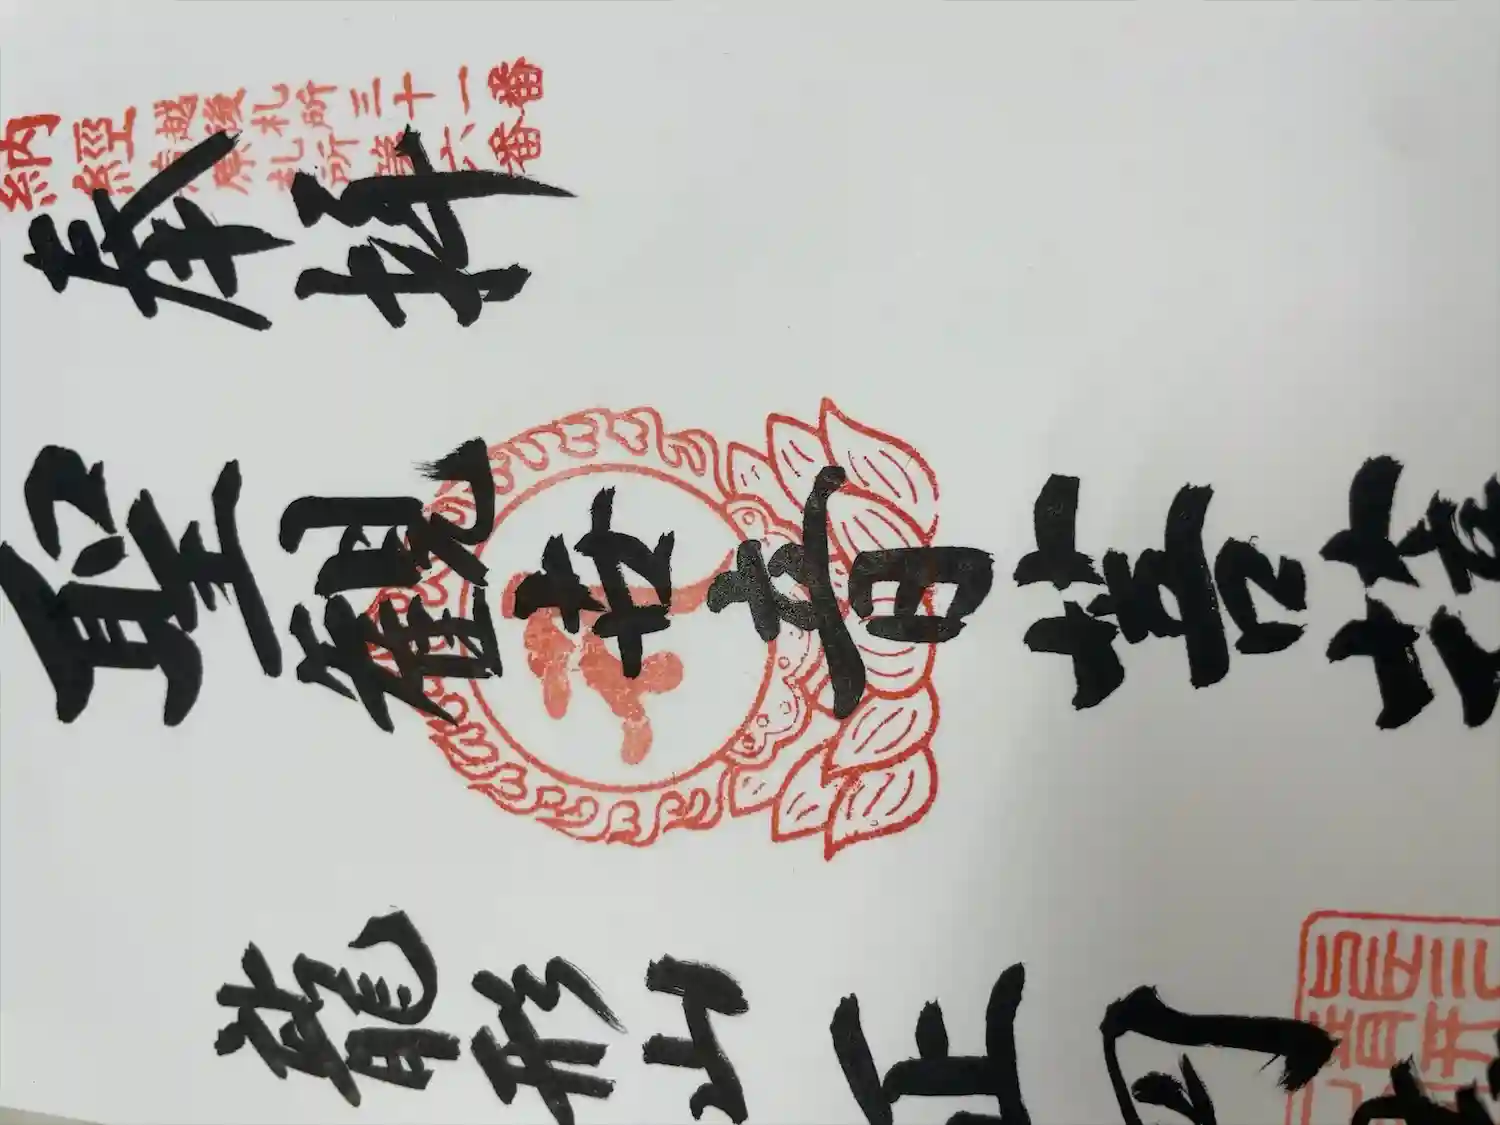 納経
越後札所三十一番
蒲原札所第六番
奉拝
聖観世音菩薩
龍形山正円